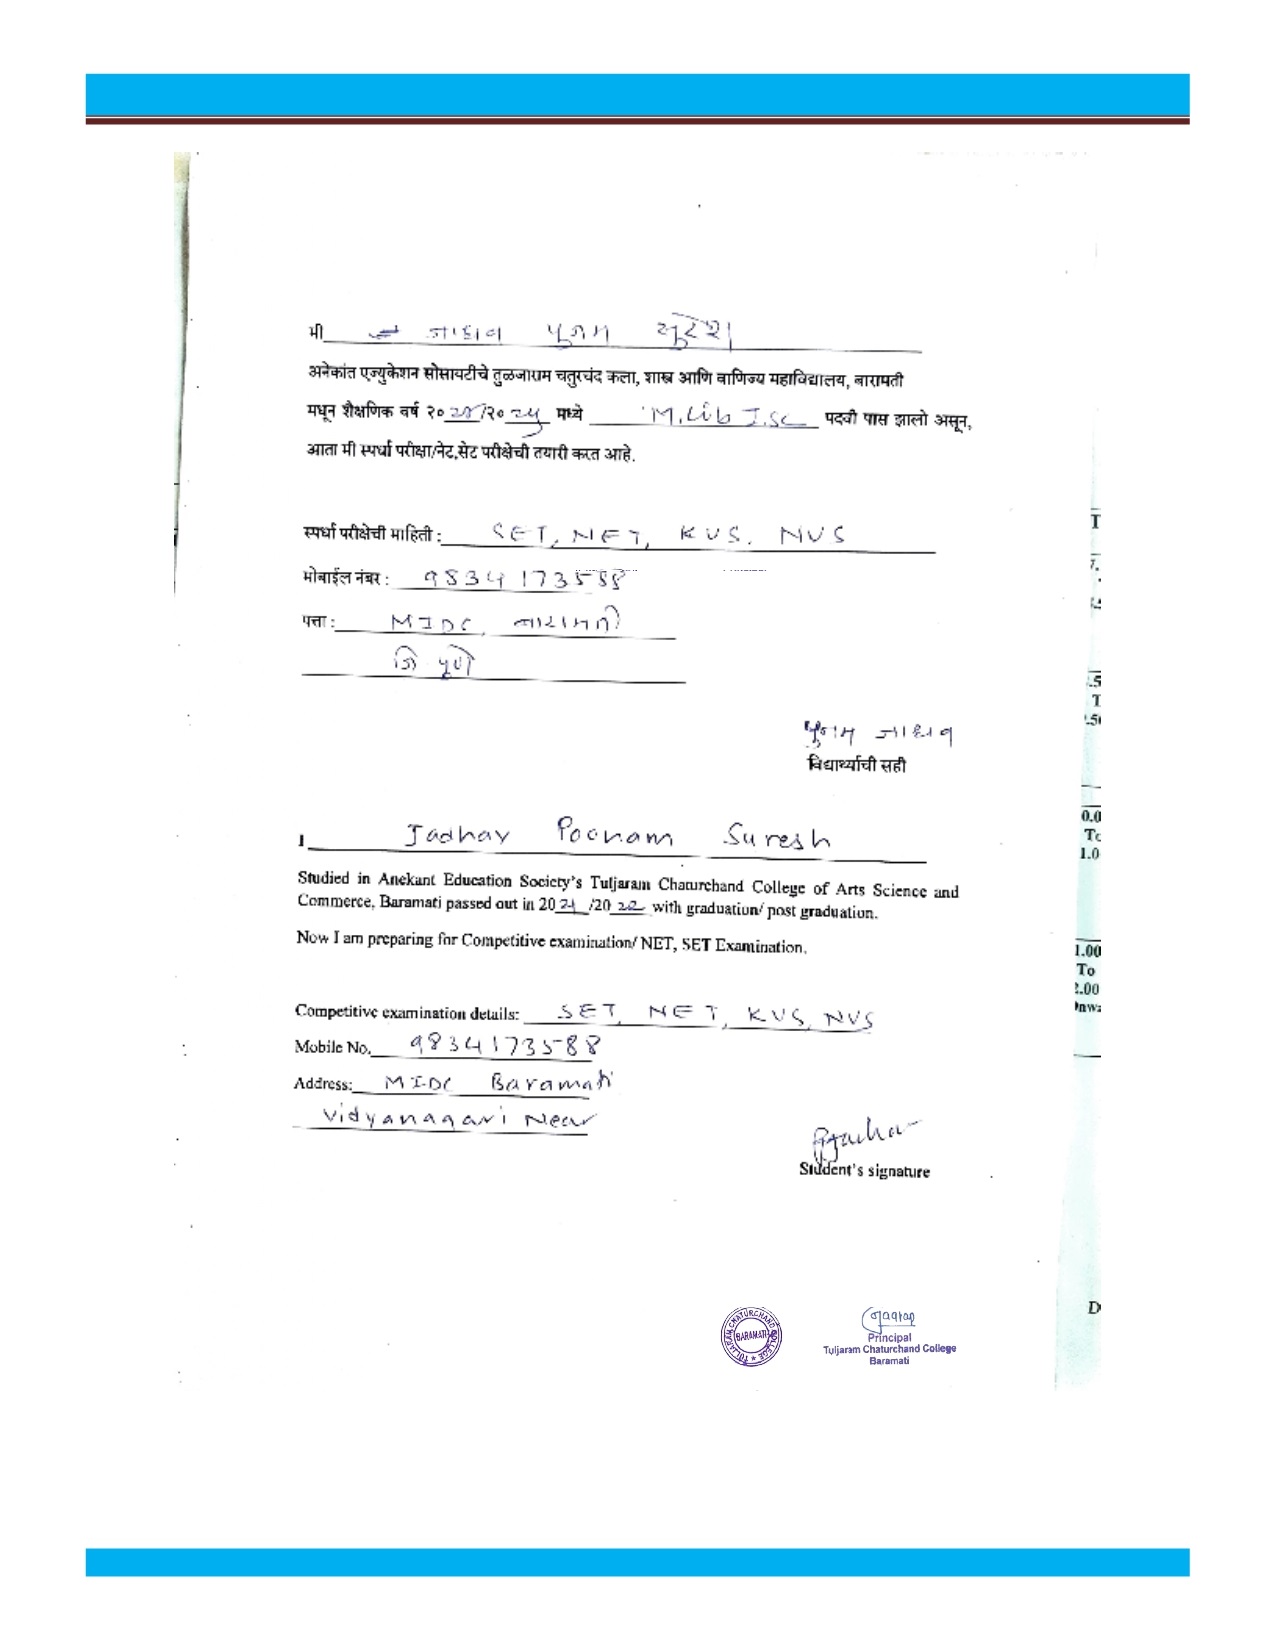 मी जाधव पुनम सुरेश
अनेकांत एज्युकेशन सोसायटीचे तुळजाराम चतुरचंद कला, शास्त्र आणि वाणिज्य महाविद्यालय, बारामती
मधून शैक्षणिक वर्ष २० /२० मध्ये M.Lib I.SC पदवी पास झालो असून,
आता मी स्पर्धा परीक्षा/नेट,सेट परीक्षेची तयारी करत आहे.
स्पर्धा परीक्षेची माहिती : SET, NET, KVS, NVS
मोबाईल नंबर : 9834173588
पत्ता : MIDC, बारामती
जि पूणे
पुनम जाधव
विद्यार्थ्याची सही
I Jadhav Poonam Suresh
Studied in Anekant Education Society's Tuljaram Chaturchand College of Arts Science and
Commerce, Baramati passed out in 2021 /2022 with graduation/ post graduation.
Now I am preparing for Competitive examination/ NET, SET Examination.
Competitive examination details: SET, NET, KVS, NVS
Mobile No. 9834173588
Address: MIDC Baramati
Vidyanagari Near
Student's signature
TULJARAM CHATURCHAND COLLEGE
BARAMATI
Principal
Tuljaram Chaturchand College
Baramati